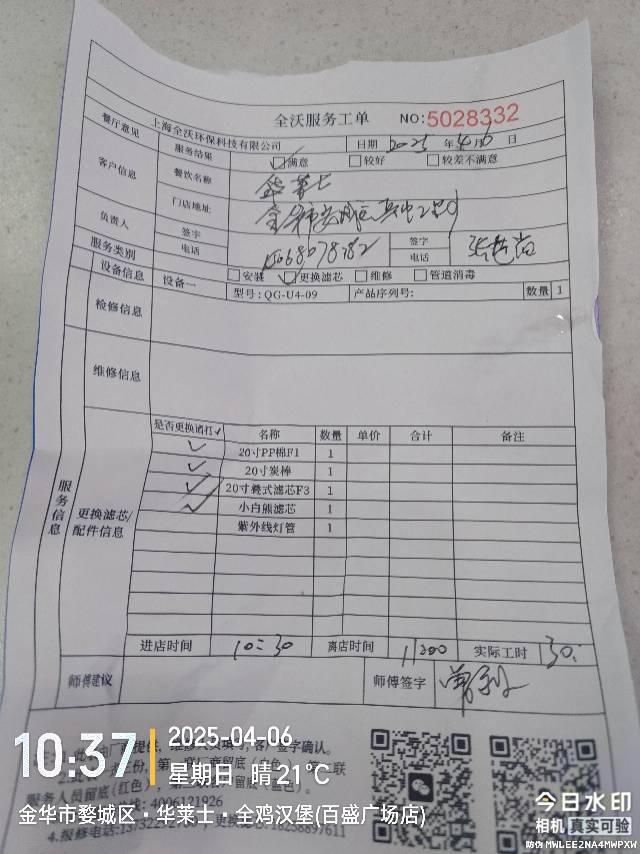 全沃服务工单 NO:5028332
上海全沃环保科技有限公司 日期 2025 年 4 月 6 日
餐厅意见 服务结果 满意 较好 较差不满意
客户信息 餐饮名称 华莱士
门店地址
负责人 签字 电话 签字 电话
服务类别 安装 更换滤芯 维修 管道消毒
设备信息 设备一 型号:QG-U4-09 产品序列号: 数量 1
检修信息
维修信息
服务信息
更换滤芯/配件信息
是否更换请打✓ 名称 数量 单价 合计 备注
✓ 20寸PP棉F1 1
✓ 20寸炭棒 1
✓ 20寸叠式滤芯F3 1
✓ 小白熊滤芯 1
紫外线灯管 1
进店时间 10:30 离店时间 11:00 实际工时 30.
师傅建议 师傅签字
客户签字确认。
服务人员留底(红色)
4006121926
4.报修电话:
10:37
2025-04-06
星期日 晴 21℃
金华市婺城区·华莱士·全鸡汉堡(百盛广场店)
今日水印
相机 真实可验
防伪 MWLEE2NA4MWPXW